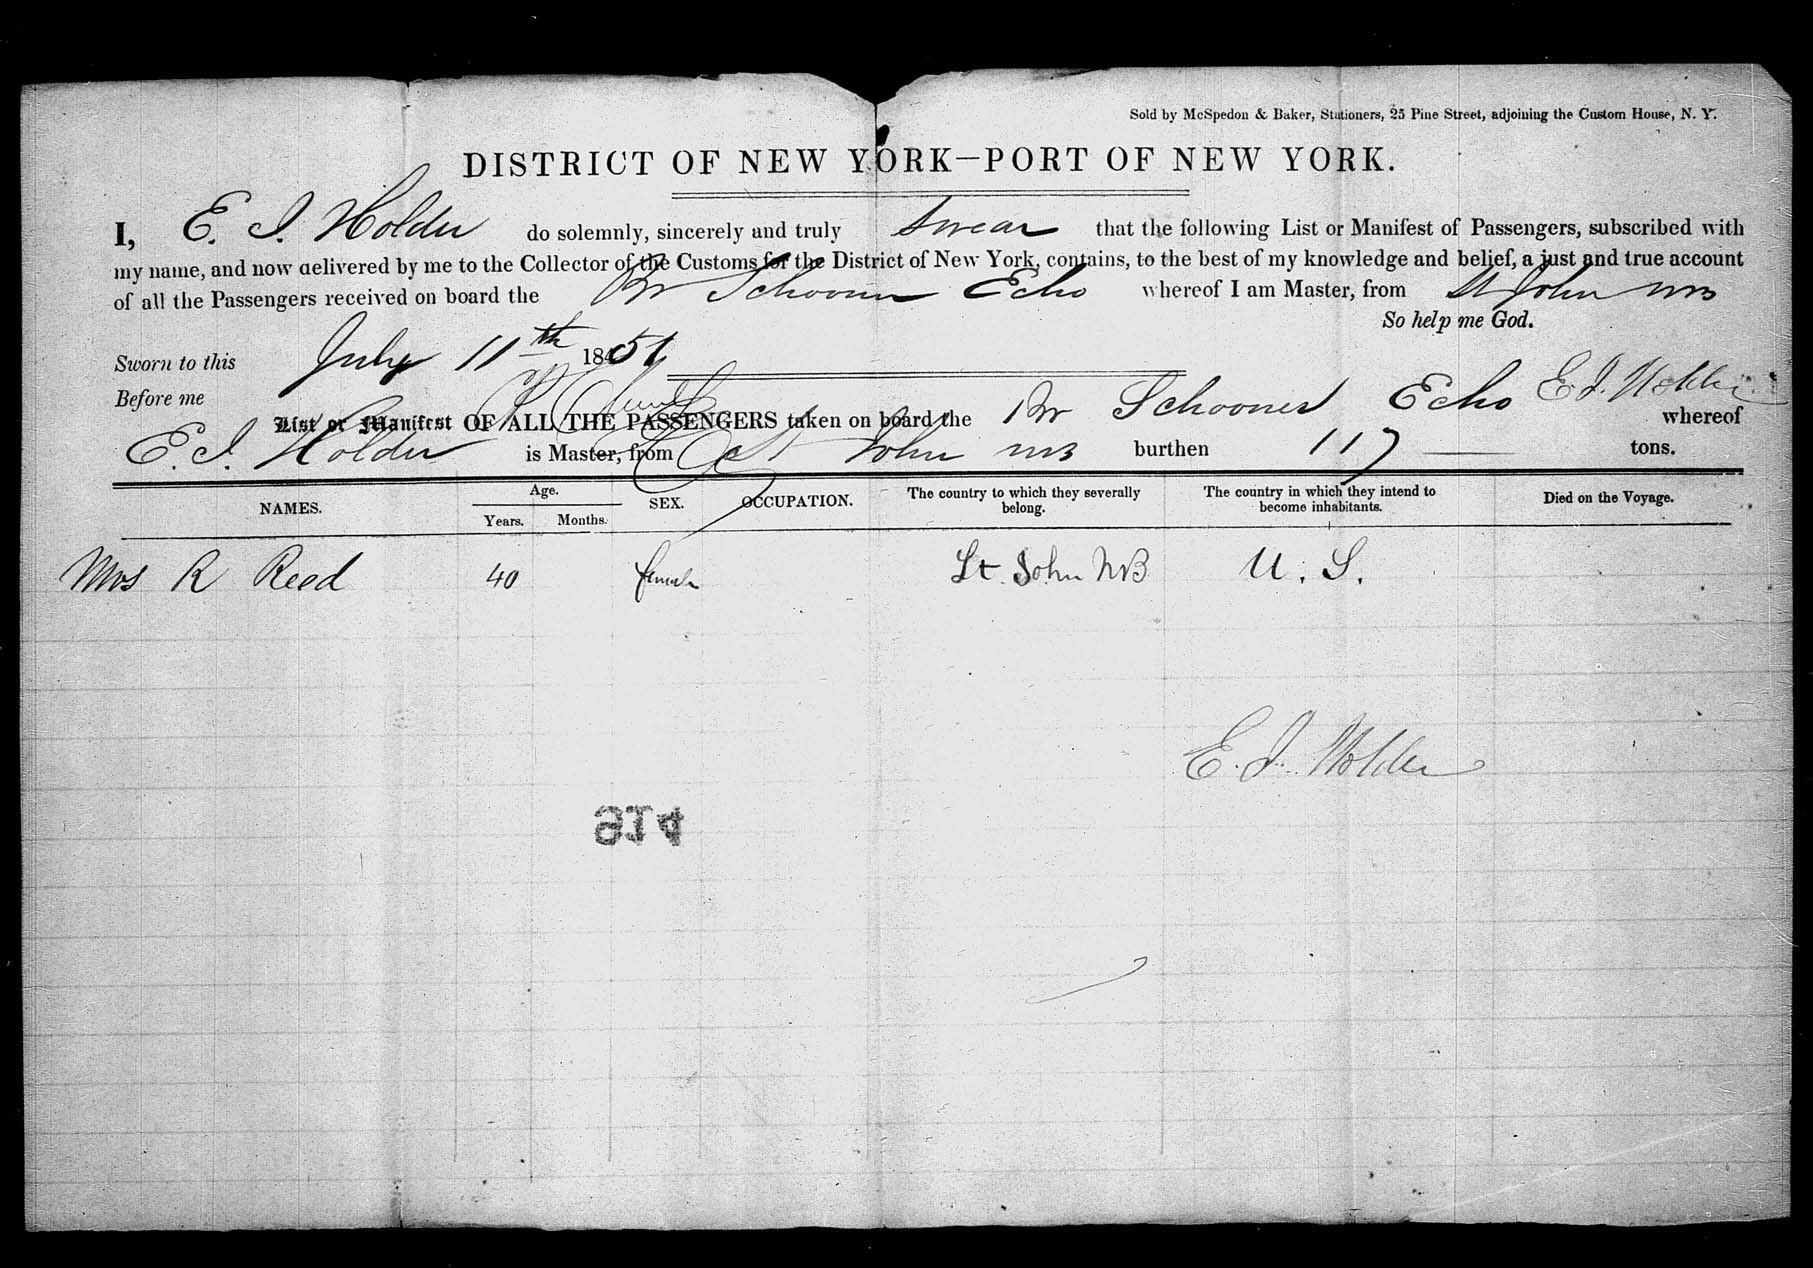 Sold by McSpedon & Baker, Stationers, 25 Pine Street, adjoining the Custom House, N. Y.
DISTRICT OF NEW YORK—PORT OF NEW YORK.
I, E. J. Holder do solemnly, sincerely and truly swear that the following List or Manifest of Passengers, subscribed with
my name, and now delivered by me to the Collector of the Customs for the District of New York, contains, to the best of my knowledge and belief, a just and true account
of all the Passengers received on board the Br Schooner Echo whereof I am Master, from St John NB
So help me God.
Sworn to this July 11th 1851
Before me E J. Holder
List or Manifest OF ALL THE PASSENGERS taken on board the Br Schooner Echo whereof
E. J. Holder is Master, from St John NB burthen 117 tons.
NAMES. Age. Years. Months. SEX. OCCUPATION. The country to which they severally belong. The country in which they intend to become inhabitants. Died on the Voyage.
Mrs R Reed 40 female St. John NB U. S.
E. J. Holder
914